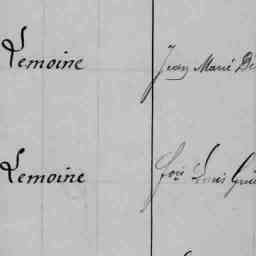 Lemoine Jean Marie
Lemoine fois Louis